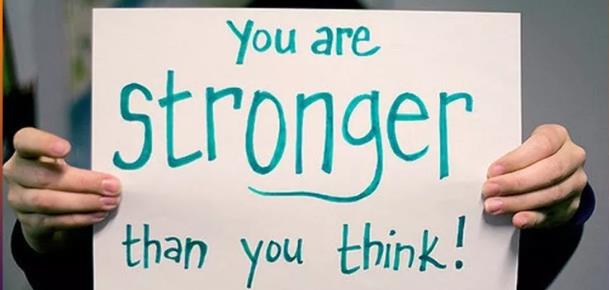 you are
stronger
than you think!